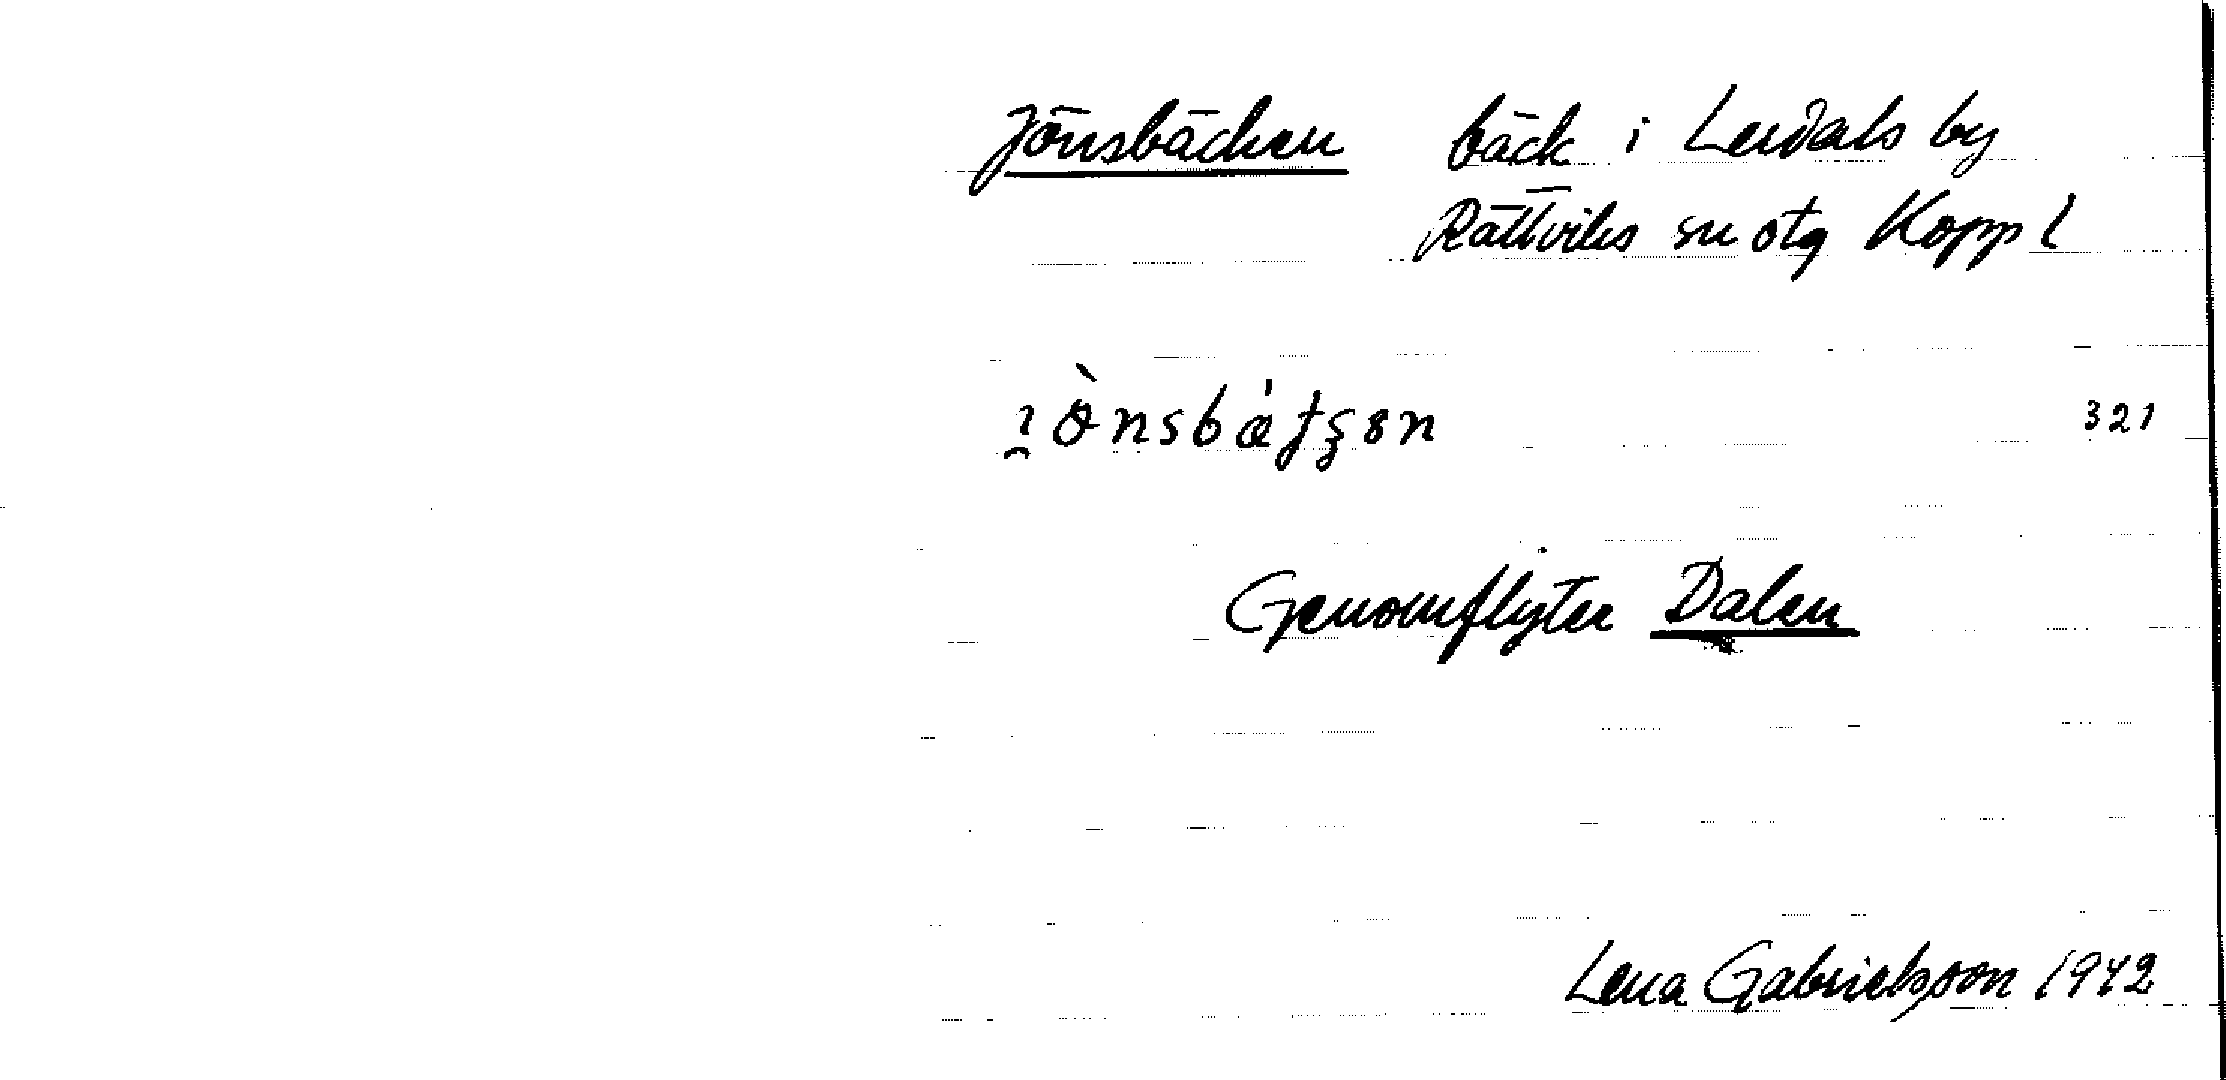 Jönsbäcken bäck i Lerdals by
Rättviks sn otg Kopp l
321
Genomflyter Dalen
Lena Gabrielsson 1942